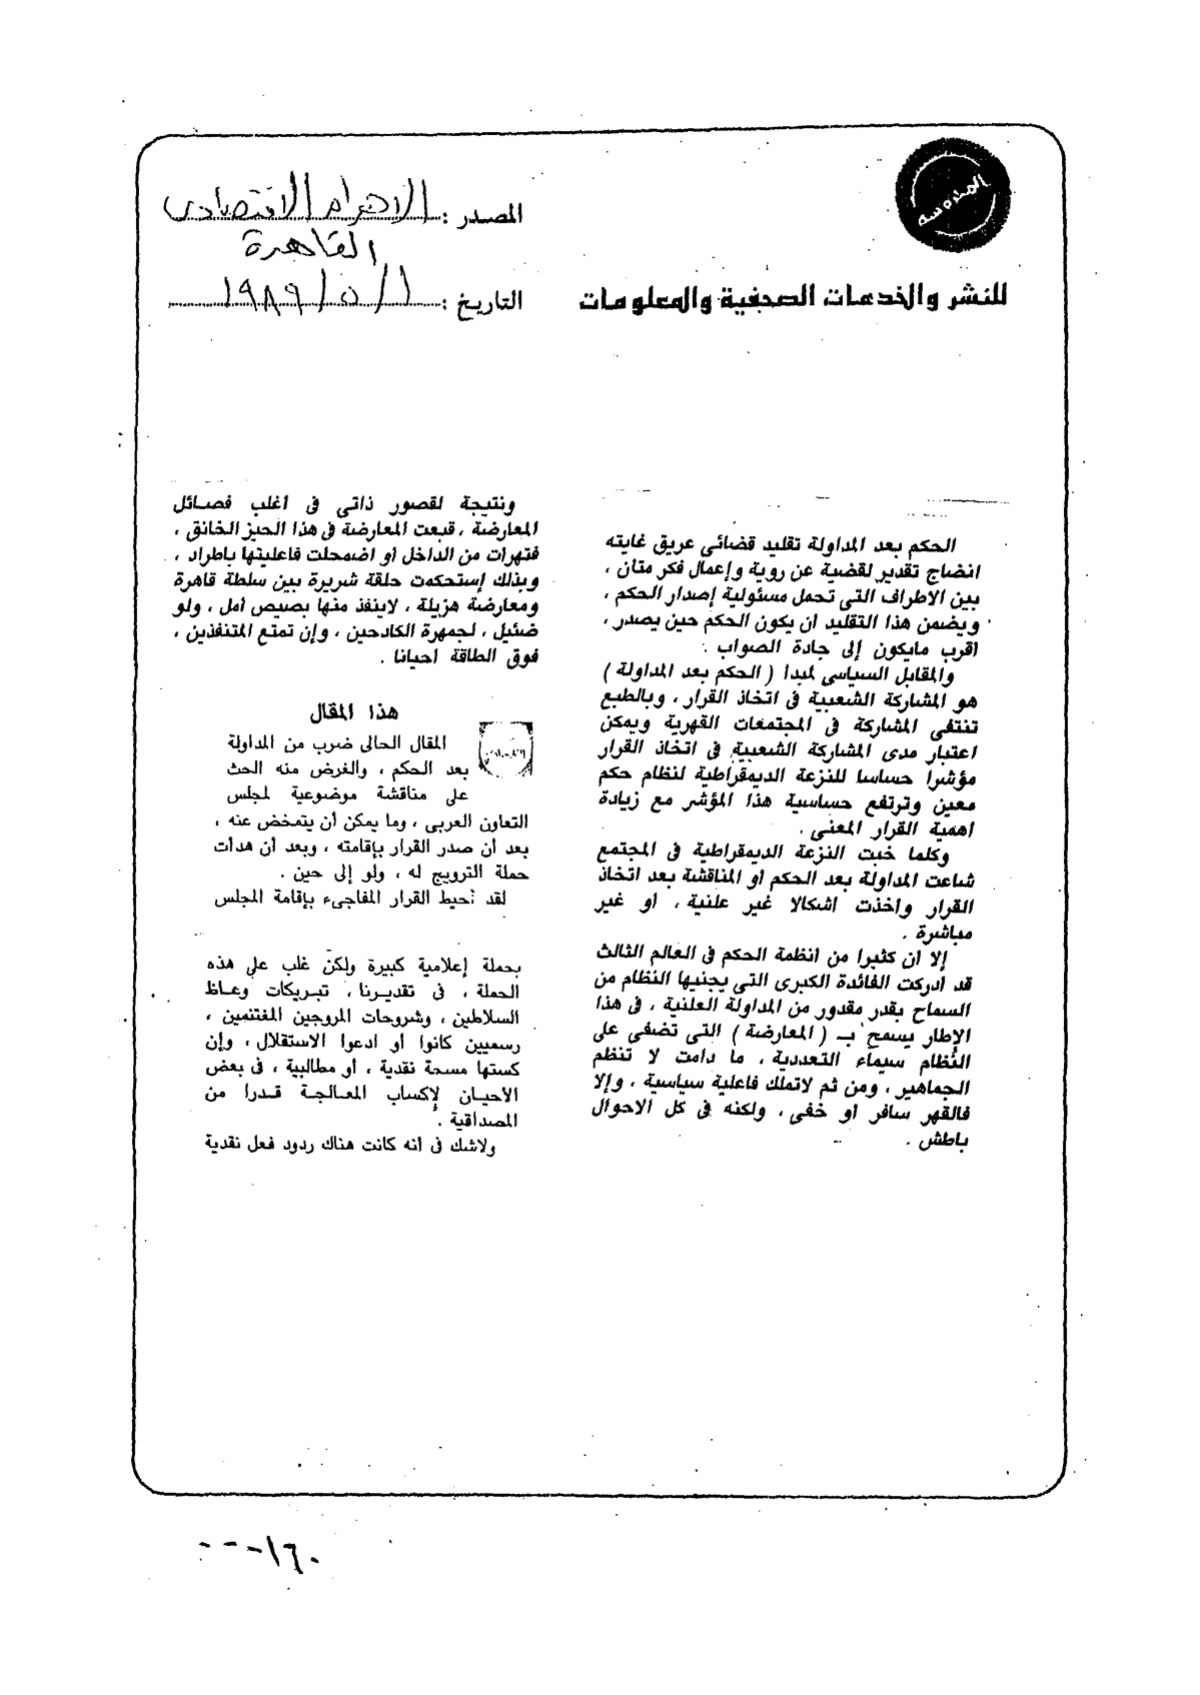 المحروسة
للنشر والخدمات الصحفية والمعلومات
المصدر : الاهرام الاقتصادى
القاهرة
التاريخ : ١ / ٥ / ١٩٨٩
الحكم بعد المداولة تقليد قضائى عريق غايته
انضاج تقدير لقضية عن روية وإعمال فكر متان ،
بين الاطراف التى تحمل مسئولية إصدار الحكم ،
ويضمن هذا التقليد ان يكون الحكم حين يصدر ،
اقرب مايكون إلى جادة الصواب .
والمقابل السياسى لمبدا ( الحكم بعد المداولة )
هو المشاركة الشعبية فى اتخاذ القرار ، وبالطبع
تنتفى المشاركة فى المجتمعات القهرية ويمكن
اعتبار مدى المشاركة الشعبية فى اتخاذ القرار
مؤشرا حساسا للنزعة الديمقراطية لنظام حكم
معين وترتفع حساسية هذا المؤشر مع زيادة
اهمية القرار المعنى .
وكلما خبت النزعة الديمقراطية فى المجتمع
شاعت المداولة بعد الحكم او المناقشة بعد اتخاذ
القرار واخذت اشكالا غير علنية ، او غير
مباشرة .
إلا ان كثيرا من انظمة الحكم فى العالم الثالث
قد ادركت الفائدة الكبرى التى يجنيها النظام من
السماح بقدر مقدور من المداولة العلنية ، فى هذا
الإطار يسمح بـ ( المعارضة ) التى تضفى على
النظام سيماء التعددية ، ما دامت لا تنظم
الجماهير ، ومن ثم لاتملك فاعلية سياسية ، وإلا
فالقهر سافر او خفى ، ولكنه فى كل الاحوال
باطش .
ونتيجة لقصور ذاتى فى اغلب فصائل
المعارضة ، قبعت المعارضة فى هذا الحيز الخانق ،
فتهرات من الداخل أو اضمحلت فاعليتها باطراد ،
وبذلك إستحكمت حلقة شريرة بين سلطة قاهرة
ومعارضة هزيلة ، لاينفذ منها بصيص أمل ، ولو
ضئيل ، لجمهرة الكادحين ، وإن تمتع المتنفذين ،
فوق الطاقة احيانا .
هذا المقال
المقال الحالى ضرب من المداولة
بعد الحكم ، والغرض منه الحث
على مناقشة موضوعية لمجلس
التعاون العربى ، وما يمكن أن يتمخض عنه ،
بعد أن صدر القرار بإقامته ، وبعد أن هدأت
حملة الترويج له ، ولو إلى حين .
لقد أحيط القرار المفاجىء بإقامة المجلس
بحملة إعلامية كبيرة ولكن غلب على هذه
الحملة ، فى تقديرنا ، تبريكات وعاظ
السلاطين ، وشروحات المروجين المغتنمين ،
رسميين كانوا أو ادعوا الاستقلال ، وإن
كستها مسحة نقدية ، أو مطالبية ، فى بعض
الأحيان لإكساب المعالجة قدرا من
المصداقية .
ولاشك فى أنه كانت هناك ردود فعل نقدية
١٦٠